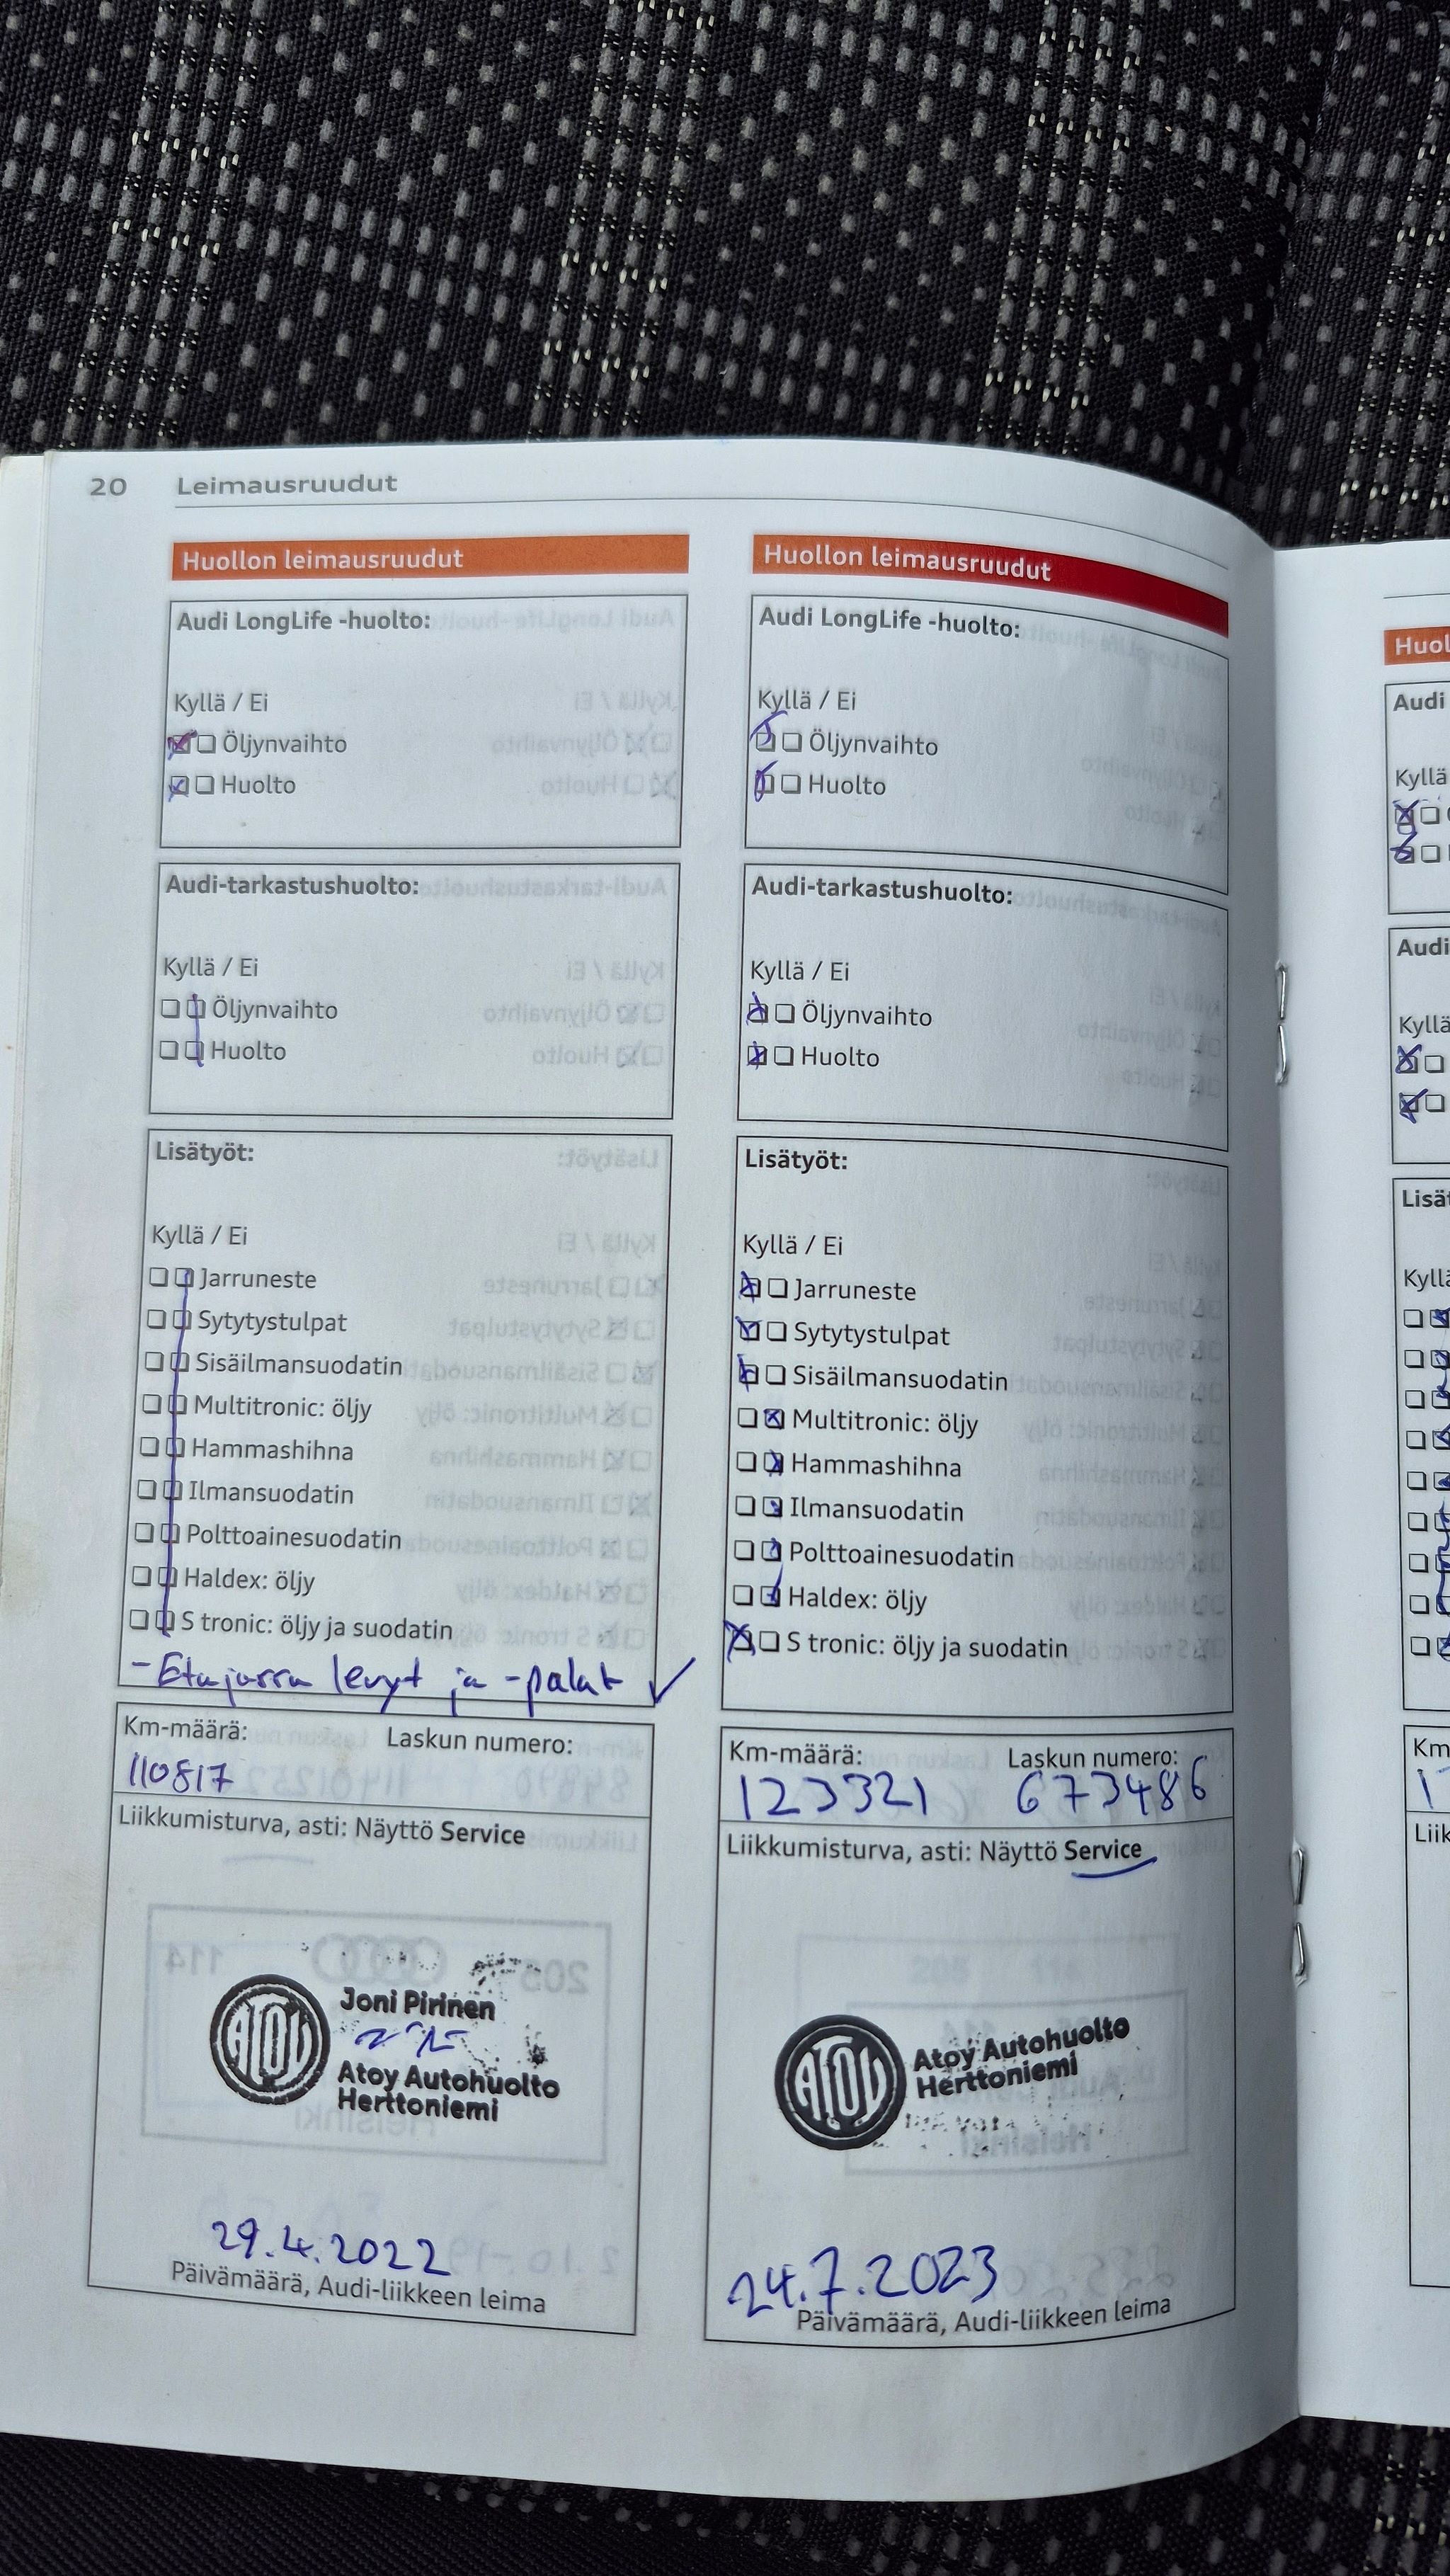 20 Leimausruudut
Huollon leimausruudut
Audi LongLife -huolto:
Kyllä / Ei
Öljynvaihto
Huolto
Audi-tarkastushuolto:
Kyllä / Ei
Öljynvaihto
Huolto
Lisätyöt:
Kyllä / Ei
Jarruneste
Sytytystulpat
Sisäilmansuodatin
Multitronic: öljy
Hammashihna
Ilmansuodatin
Polttoainesuodatin
Haldex: öljy
S tronic: öljy ja suodatin
- Etujarru levyt ja -palat
Km-määrä: Laskun numero:
110817
Liikkumisturva, asti: Näyttö Service
Joni Pirinen
Atoy Autohuolto
Herttoniemi
29.4.2022
Päivämäärä, Audi-liikkeen leima
Huollon leimausruudut
Audi LongLife -huolto:
Kyllä / Ei
Öljynvaihto
Huolto
Audi-tarkastushuolto:
Kyllä / Ei
Öljynvaihto
Huolto
Lisätyöt:
Kyllä / Ei
Jarruneste
Sytytystulpat
Sisäilmansuodatin
Multitronic: öljy
Hammashihna
Ilmansuodatin
Polttoainesuodatin
Haldex: öljy
S tronic: öljy ja suodatin
Km-määrä: Laskun numero:
123321 673486
Liikkumisturva, asti: Näyttö Service
Atoy Autohuolto
Herttoniemi
24.7.2023
Päivämäärä, Audi-liikkeen leima
Huol
Audi
Kyllä
Audi
Kyllä
Lisät
Kyllä
Km
Liik